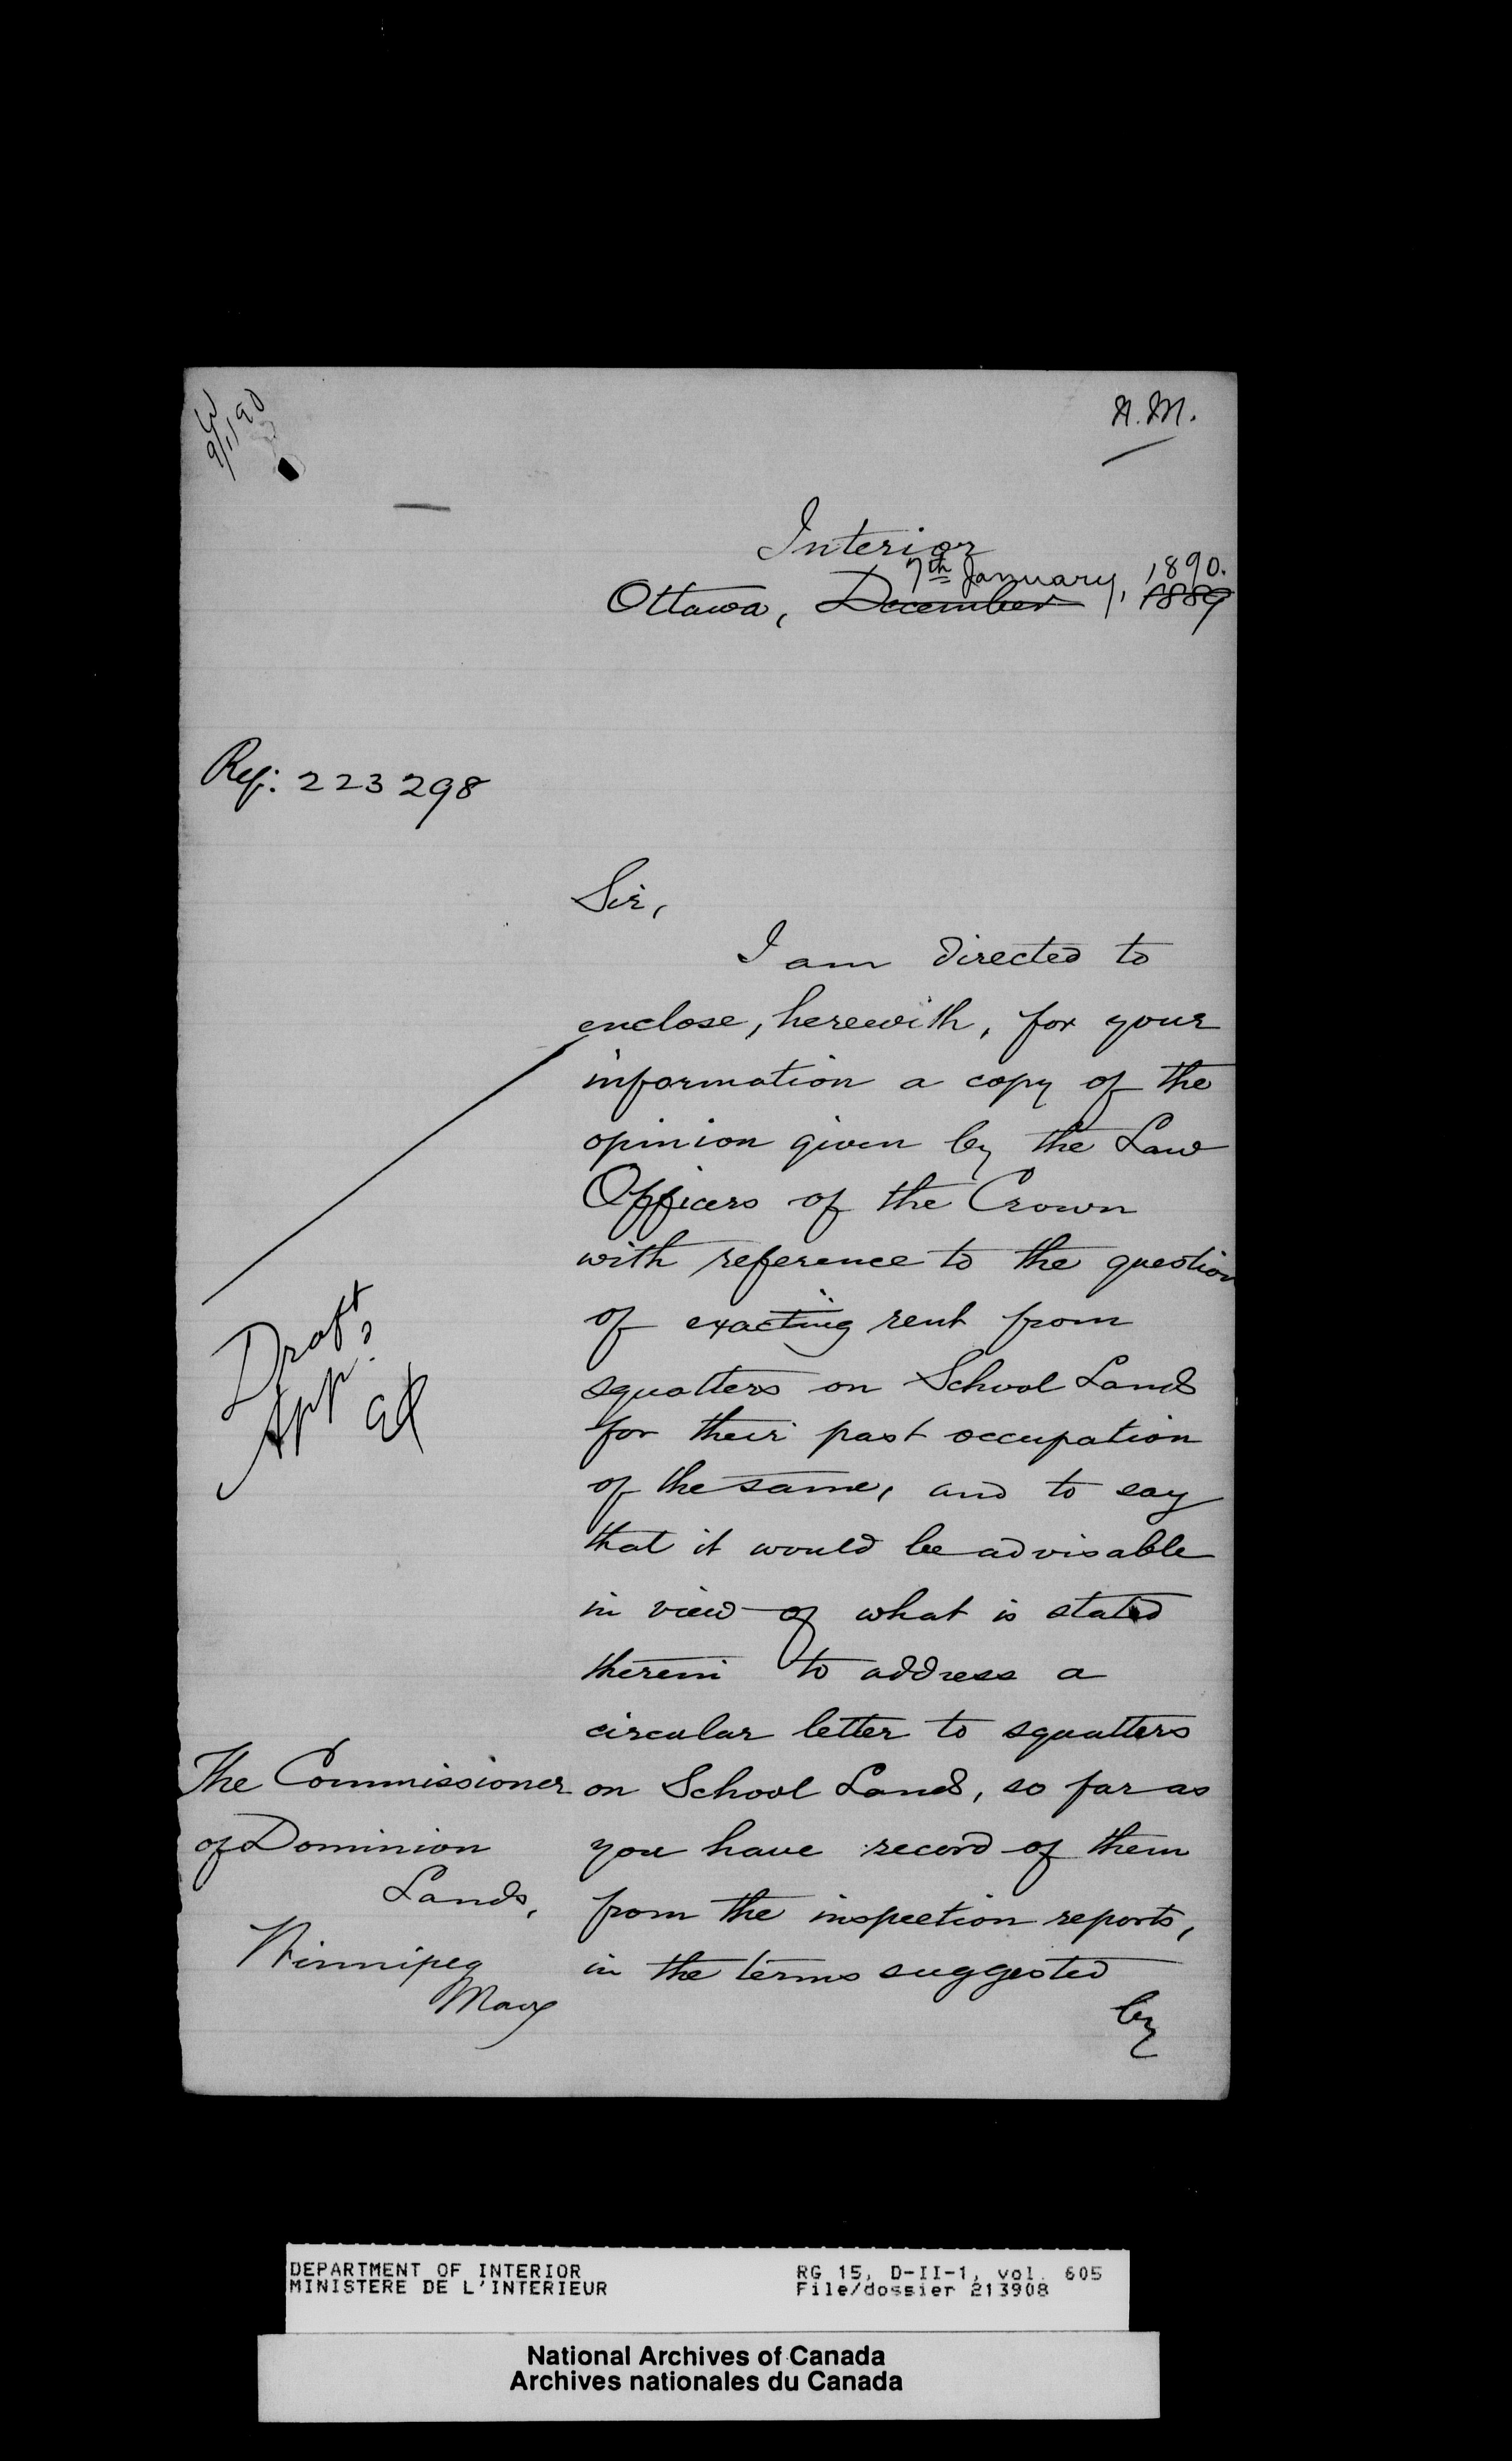 9/1/90
A.M.
Interior
7th January, 1890.
Ottawa, December 1889
Ref: 223298
Sir,
I am directed to
enclose, herewith, for your
information a copy of the
opinion given by the Law
Officers of the Crown
with reference to the question
of exacting rent from
squatters on School Lands
for their past occupation
of the same, and to say
that it would be advisable
in view of what is stated
therein to address a
circular letter to squatters
on School Lands, so far as
you have record of them
from the inspection reports,
in the terms suggested
by
Draft
App.
The Commissioner
of Dominion
Lands,
Winnipeg
DEPARTMENT OF INTERIOR
MINISTERE DE L'INTERIEUR
RG 15, D-II-1, vol. 605
File/dossier 213908
National Archives of Canada
Archives nationales du Canada